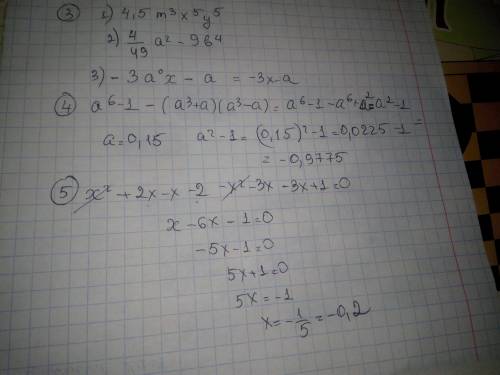 ③ 1) 4,5 m³x⁵y⁵
2) 4/49 a² - 9b⁴
3) - 3a⁰x - a = -3x-a
④ a⁶-1 - (a³+a)(a³-a) = a⁶-1-a⁶+a²=a²-1
a=0,15 a²-1=(0,15)²-1=0,0225-1=
= -0,9775
⑤ x² + 2x - x - 2 - x² - 3x - 3x + 1 = 0
x - 6x - 1 = 0
-5x - 1 = 0
5x + 1 = 0
5x = -1
x = -1/5 = -0,2